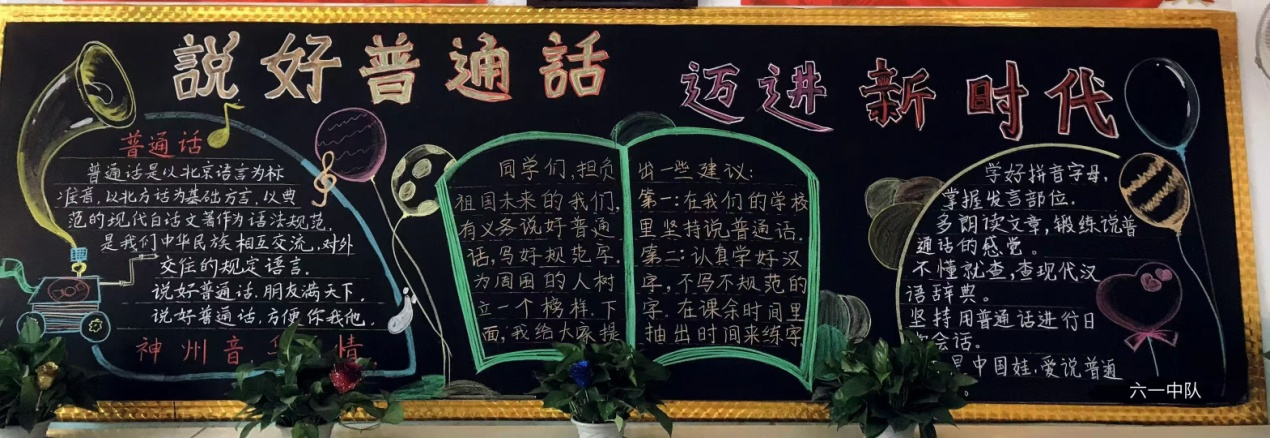 説好普通話 迈进新时代
普通话
普通话是以北京语言为标
准音,以北方话为基础方言,以典
范的现代白话文著作为语法规范,
是我们中华民族相互交流,对外
交往的规定语言.
说好普通话.朋友满天下.
说好普通话,方便你我他.
神州音. 情
同学们,担负
祖国未来的我们,
有义务说好普通
话,写好规范字.
为周围的人树
立一个榜样.下
面,我给大家提
出一些建议:
第一:在我们的学校
里坚持说普通话.
第二:认真学好汉
字,不写不规范的
字.在课余时间里
抽出时间来练字
学好拼音字母,
掌握发言部位.
多朗读文章,锻练说普
通话的感觉。
不懂就查,查现代汉
语辞典。
坚持用普通话进行日
会话。
是中国娃,爱说普通
。
六一中队